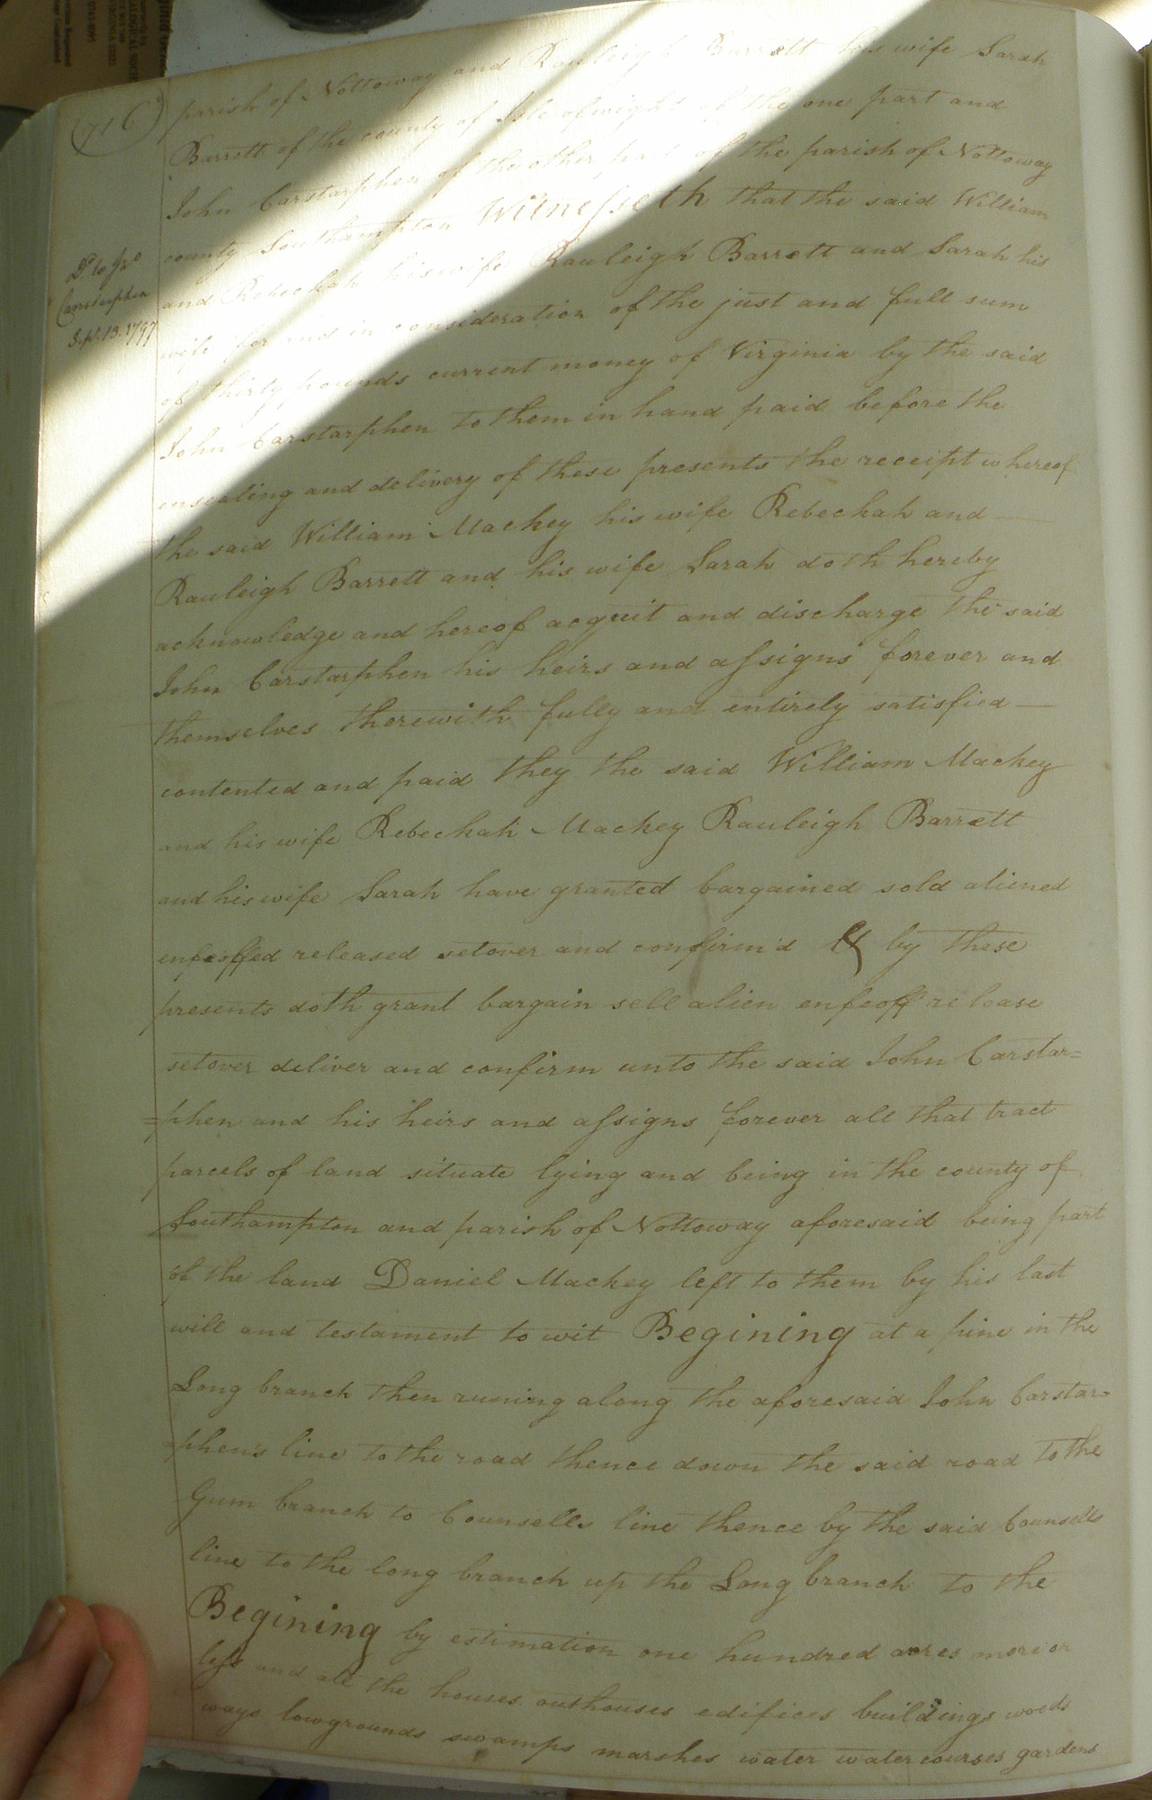 716
parish of Nottoway and Rauleigh Barrett his wife Sarah
Barrett of the county of Isle of wight of the one part and
John Carstarphen of the other part of the parish of Nottoway
county Southampton Witnesseth that the said William
and Rebeckah his wife Rauleigh Barrett and Sarah his
wife for and in consideration of the just and full sum
of thirty pounds current money of Virginia by the said
John Carstarphen to them in hand paid before the
ensealing and delivery of these presents the receipt whereof
the said William Mackey his wife Rebeckah and
Rauleigh Barrett and his wife Sarah doth hereby
acknowledge and hereof acquit and discharge the said
John Carstarphen his heirs and assigns forever and
themselves therewith fully and entirely satisfied
contented and paid they the said William Mackey
and his wife Rebeckah Mackey Rauleigh Barrett
and his wife Sarah have granted bargained sold aliened
enfeoffed released setover and confirm'd & by these
presents doth grant bargain sell alien enfeoff release
setover deliver and confirm unto the said John Carstar=
=phen and his heirs and assigns forever all that tract
parcels of land situate lying and being in the county of
Southampton and parish of Nottoway aforesaid being part
of the land Daniel Mackey left to them by his last
will and testament to wit Begining at a pine in the
Long branch then runing along the aforesaid John Carstar=
=phen's line to the road thence down the said road to the
Gum branch to Counsells line thence by the said Counsells
line to the long branch up the Long branch to the
Begining by estimation one hundred acres more or
less and all the houses outhouses edifices buildings woods
ways lowgrounds swamps marshes water watercourses gardens
Dd. to Jno
Carstarphen
Sept. 13. 1797